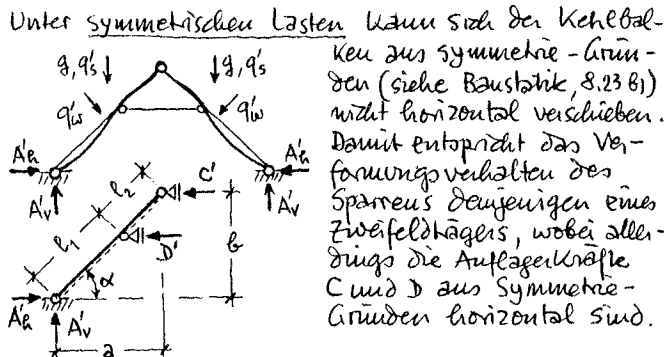 Unter symmetrischen Lasten kann sich der Kehlbal-
ken aus symmetrie-Grün-
den (siehe Baustatik, 8.23 B1)
nicht horizontal verschieben.
Damit entspricht das Ver-
formungsverhalten des
Sparrens demjenigen eines
Zweifeldträgers, wobei aller-
dings die Auflagerkräfte
C und D aus Symmetrie-
Gründen horizontal sind.
g, q's g, q's
q'w q'w
A'h A'h
A'v A'v
l1 l2 C'
D' b
α
A'h
A'v
a